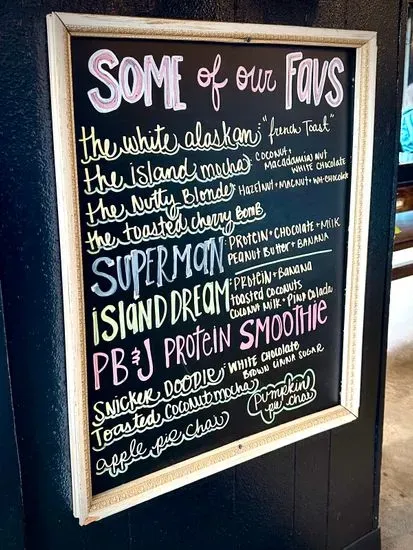 SOME of our FAVS
the white alaskan: "french Toast"
the island mocha: COCONUT, MACADAMIA NUT WHITE CHOCOLATE
the Nutty Blonde: HAZELNUT + MACNUT + WH-CHOCOLATE
the toasted cherry BOMB
SUPERMAN: PROTEIN + CHOCOLATE + MILK
PEANUT BUTTER + BANANA
ISLAND DREAM: PROTEIN + BANANA
toasted coconuts
COCONUT MILK + PINA COLADA
PB&J PROTEIN SMOOTHIE
SNICKER DOODLE: WHITE CHOCOLATE
BROWN CINNA SUGAR
Toasted coconut mocha
apple pie chai
pumpkin
pie chai